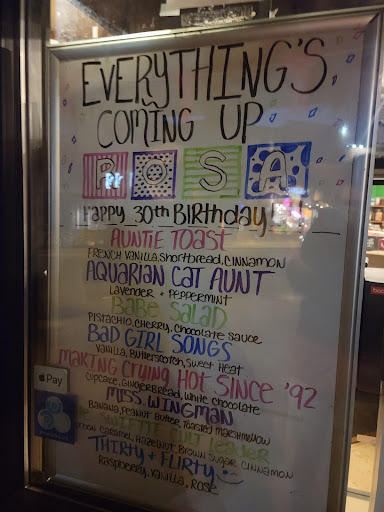 EVERYTHING'S
COMING UP
ROSA
Happy 30th Birthday!
AUNTIE TOAST
FRENCH VANILLA, SHORTBREAD, CINNAMON
AQUARIAN CAT AUNT
LAVENDER + PEPPERMINT
BABE SALAD
PISTACHIO, CHERRY, CHOCOLATE SAUCE
BAD GIRL SONGS
VANILLA, BUTTERSCOTCH, SWEET HEAT
MAKING CRYING HOT SINCE '92
CUPCAKE, GINGERBREAD, WHITE CHOCOLATE
MISS. WINGMAN
BANANA, PEANUT BUTTER, TOASTED MARSHMALLOW
SWIFTIE CULT LEADER
CARAMEL, HAZELNUT, BROWN SUGAR, CINNAMON
THIRTY + FLIRTY
RASPBERRY, VANILLA, ROSE
Pay